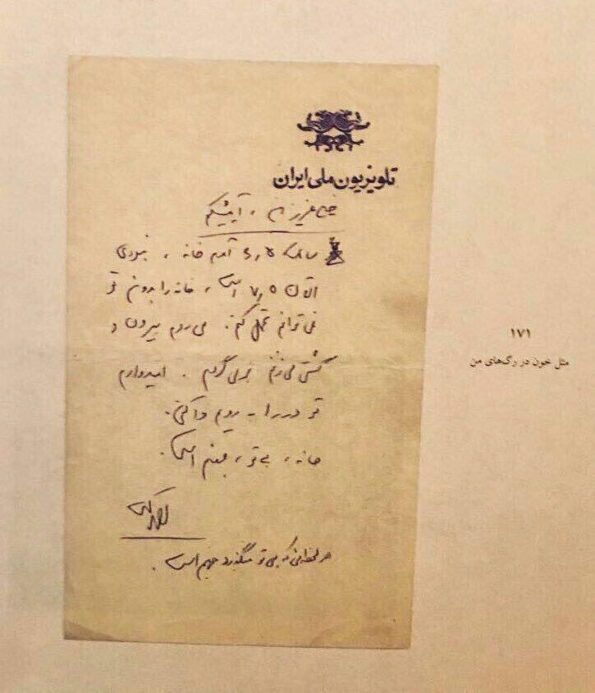 تلویزیون ملی ایران
عزیزم ،
ساعت آمدم خانه ، نبودی
الان ۷٫۵ است ، خانه را بدون تو
نمی توانم تحمل کنم . می روم بیرون و
گشتی می زنم برمی گردم . امیدوارم
تو در را به رویم واکنی .
خانه ، بی تو ، جهنم است .
که بی تو میگذرد جهنم است .
۱۷۱
مثل خون در رگ‌های من